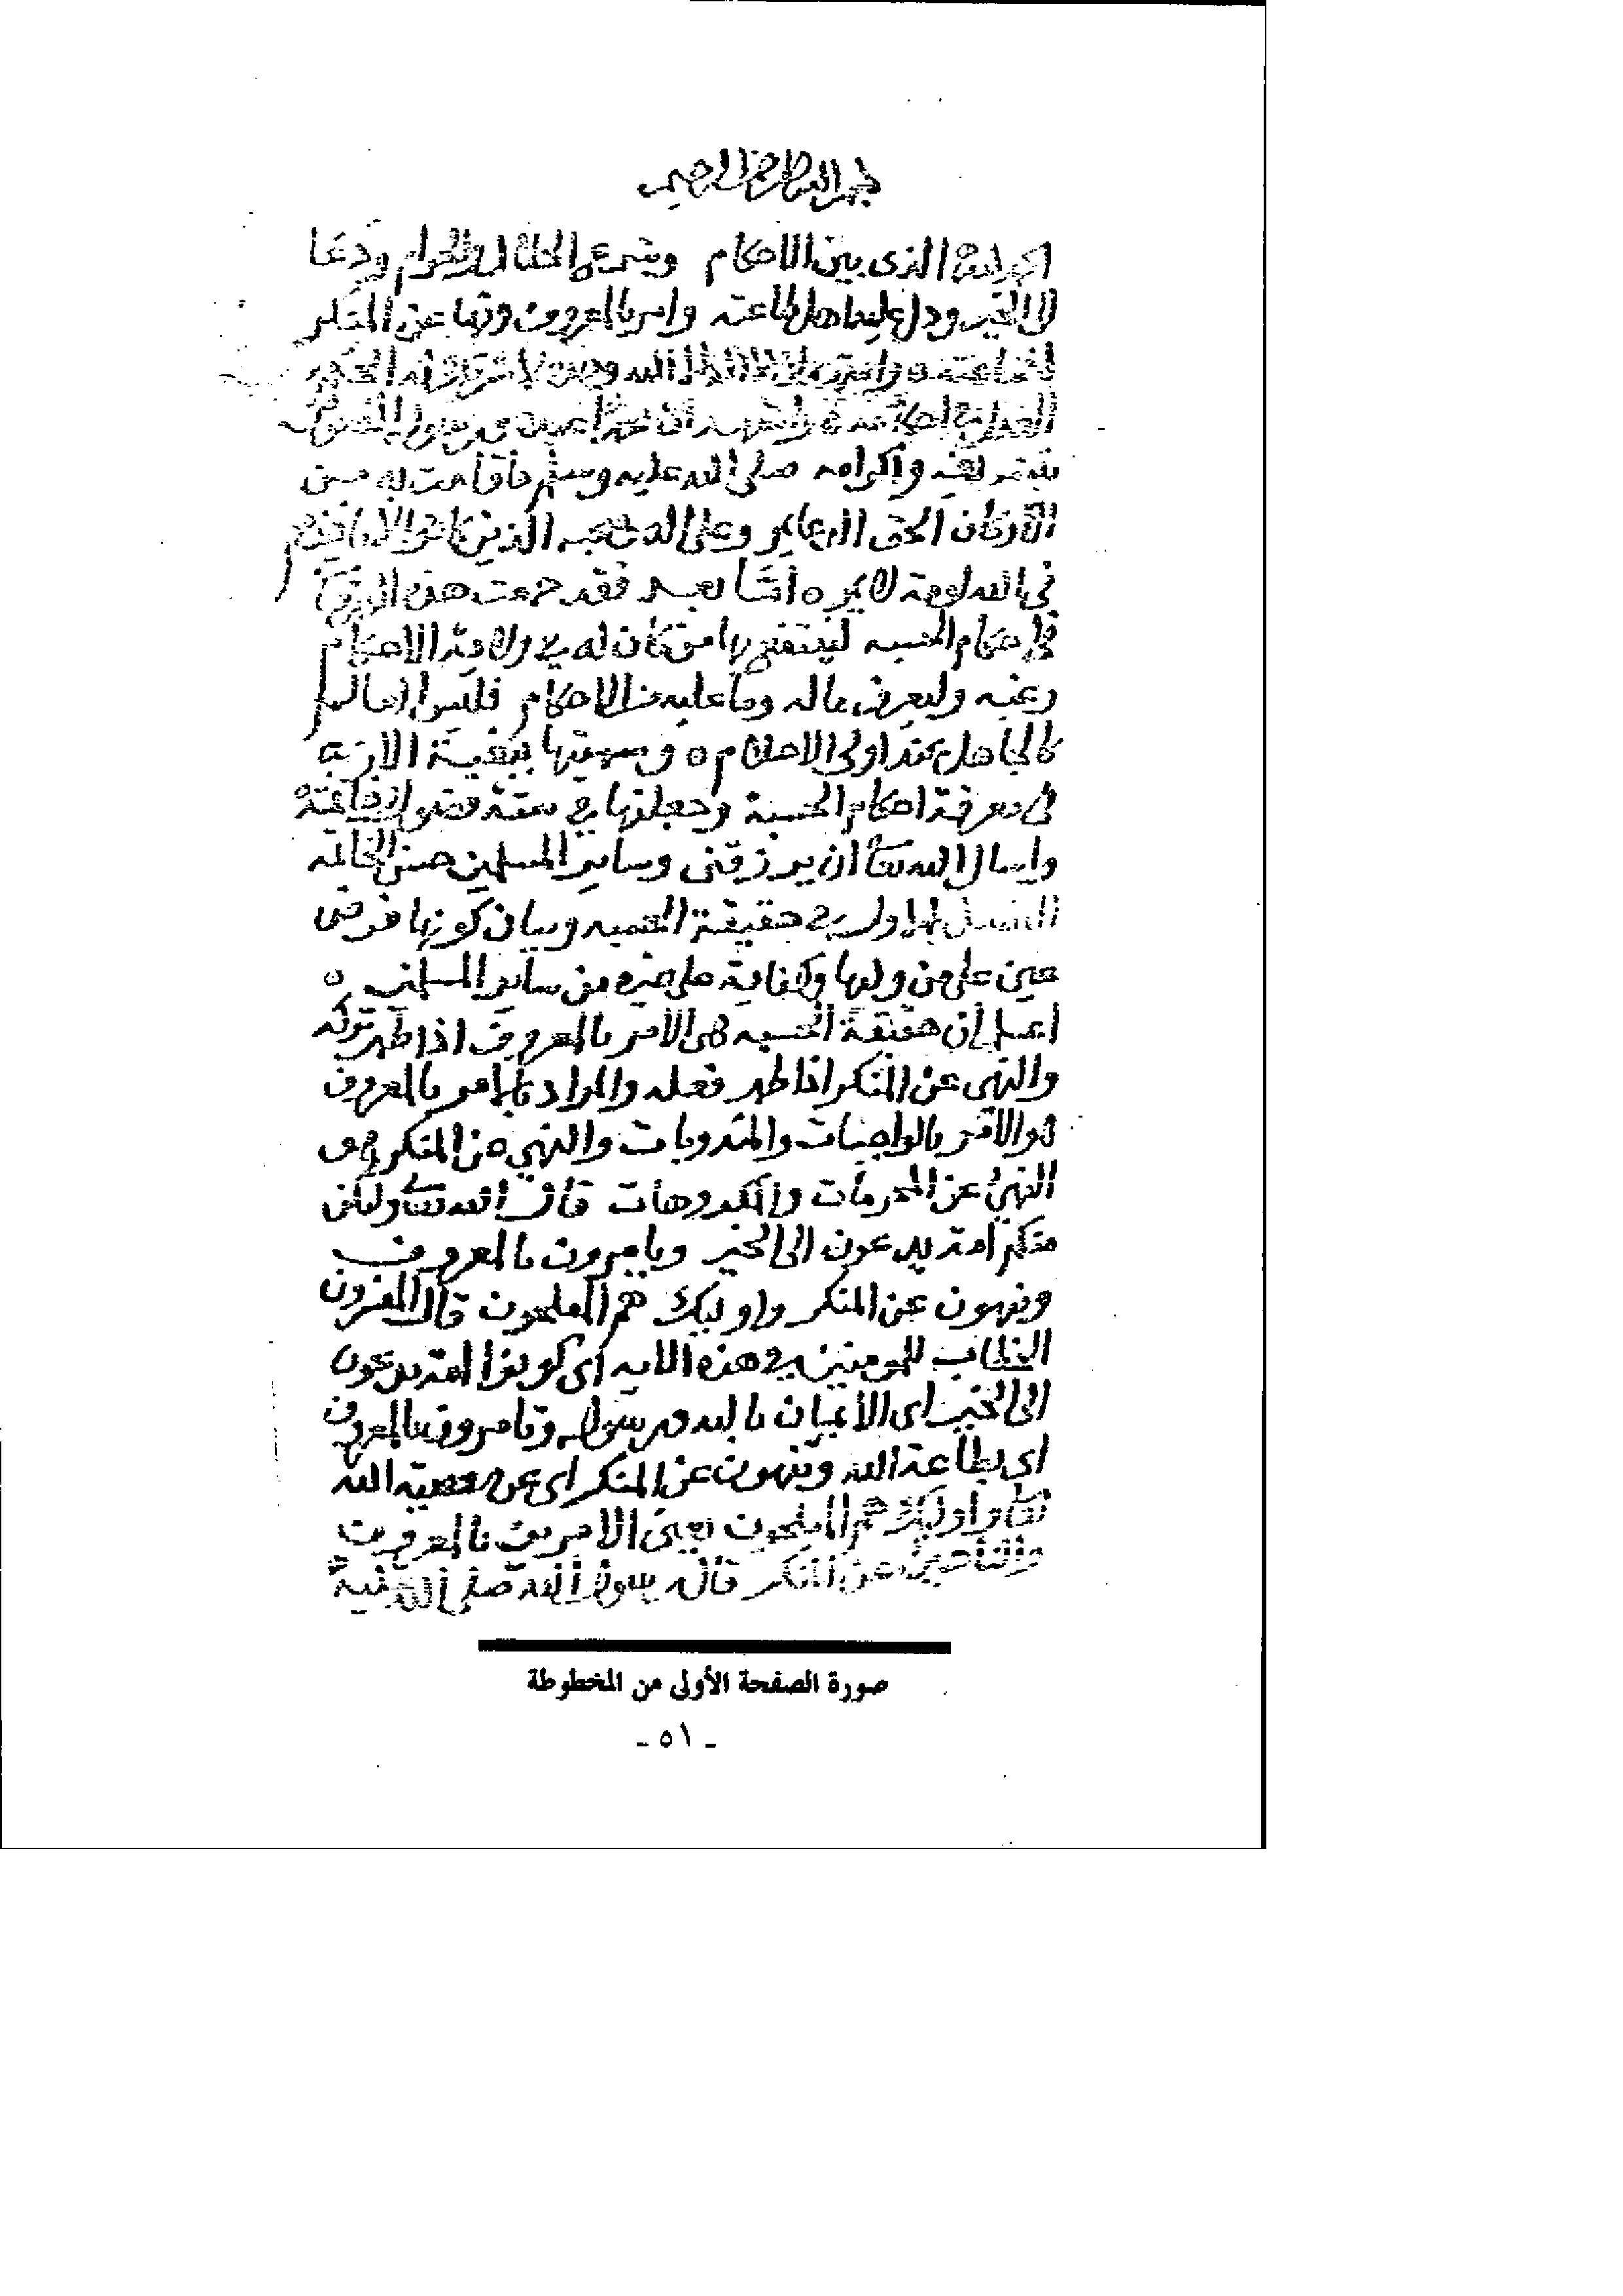 بسم الله الرحمن الرحيم
الحمد لله الذى بين الاحكام وشرع الحلال والحرام ودعا
الى الخير ودل عليه اهل طاعته وامر بالمعروف ونها عن المنكر
الله وحده لا شريك له
واشهد ان محمدا عبده ورسوله
واكرامه صلى الله عليه وسلم ما قامت به من
الاركان الحق وعلى اله وصحبه الذين
فى الله لومة لايم ه امّا بعد فقد جمعت هذه
فى احكام الحسبه لينتفع بها من كان له في ولاية الاحكام
رغبه وليعرف ماله وما عليه من الاحكام فليس العالم
كالجاهل عند اولى الاحلام ه وسميتها ببغية الاربة
فى معرفة احكام الحسبة وجعلتها في ستة فصول وخاتمة
واسال الله تعالى ان يرزقنى وساير المسلمين حسن الخاتمه
الفصل الاول في حقيقة الحسبه وبيان كونها فرض
عين على من وليها وكفاية على غيره من ساير المسلمين ه
اعلم ان حقيقة الحسبه هى الامر بالمعروف اذا ظهر تركه
والنهى عن المنكر اذا ظهر فعله والمراد بالامر بالمعروف
هو الامر بالواجبات والمندوبات والنهي عن المنكر هو
النهي عن المحرمات والمكروهات قال الله تعالى ولتكن
منكم امة يدعون الى الخير ويامرون بالمعروف
وينهون عن المنكر واوليك هم المفلحون قال المفسرون
الخطاب للمومنين في هذه الايه اى كونوا امة يدعون
الى الخير اى الايمان بالله ورسوله وتامرون بالمعروف
اى بطاعة الله وتنهون عن المنكر اى عن معصية الله
تعالى واوليك هم المفلحون يعنى الامرين بالمعروف
والناهين عن المنكر قال رسول الله صلى الله عليه
صورة الصفحة الأولى من المخطوطة
- ٥١ -